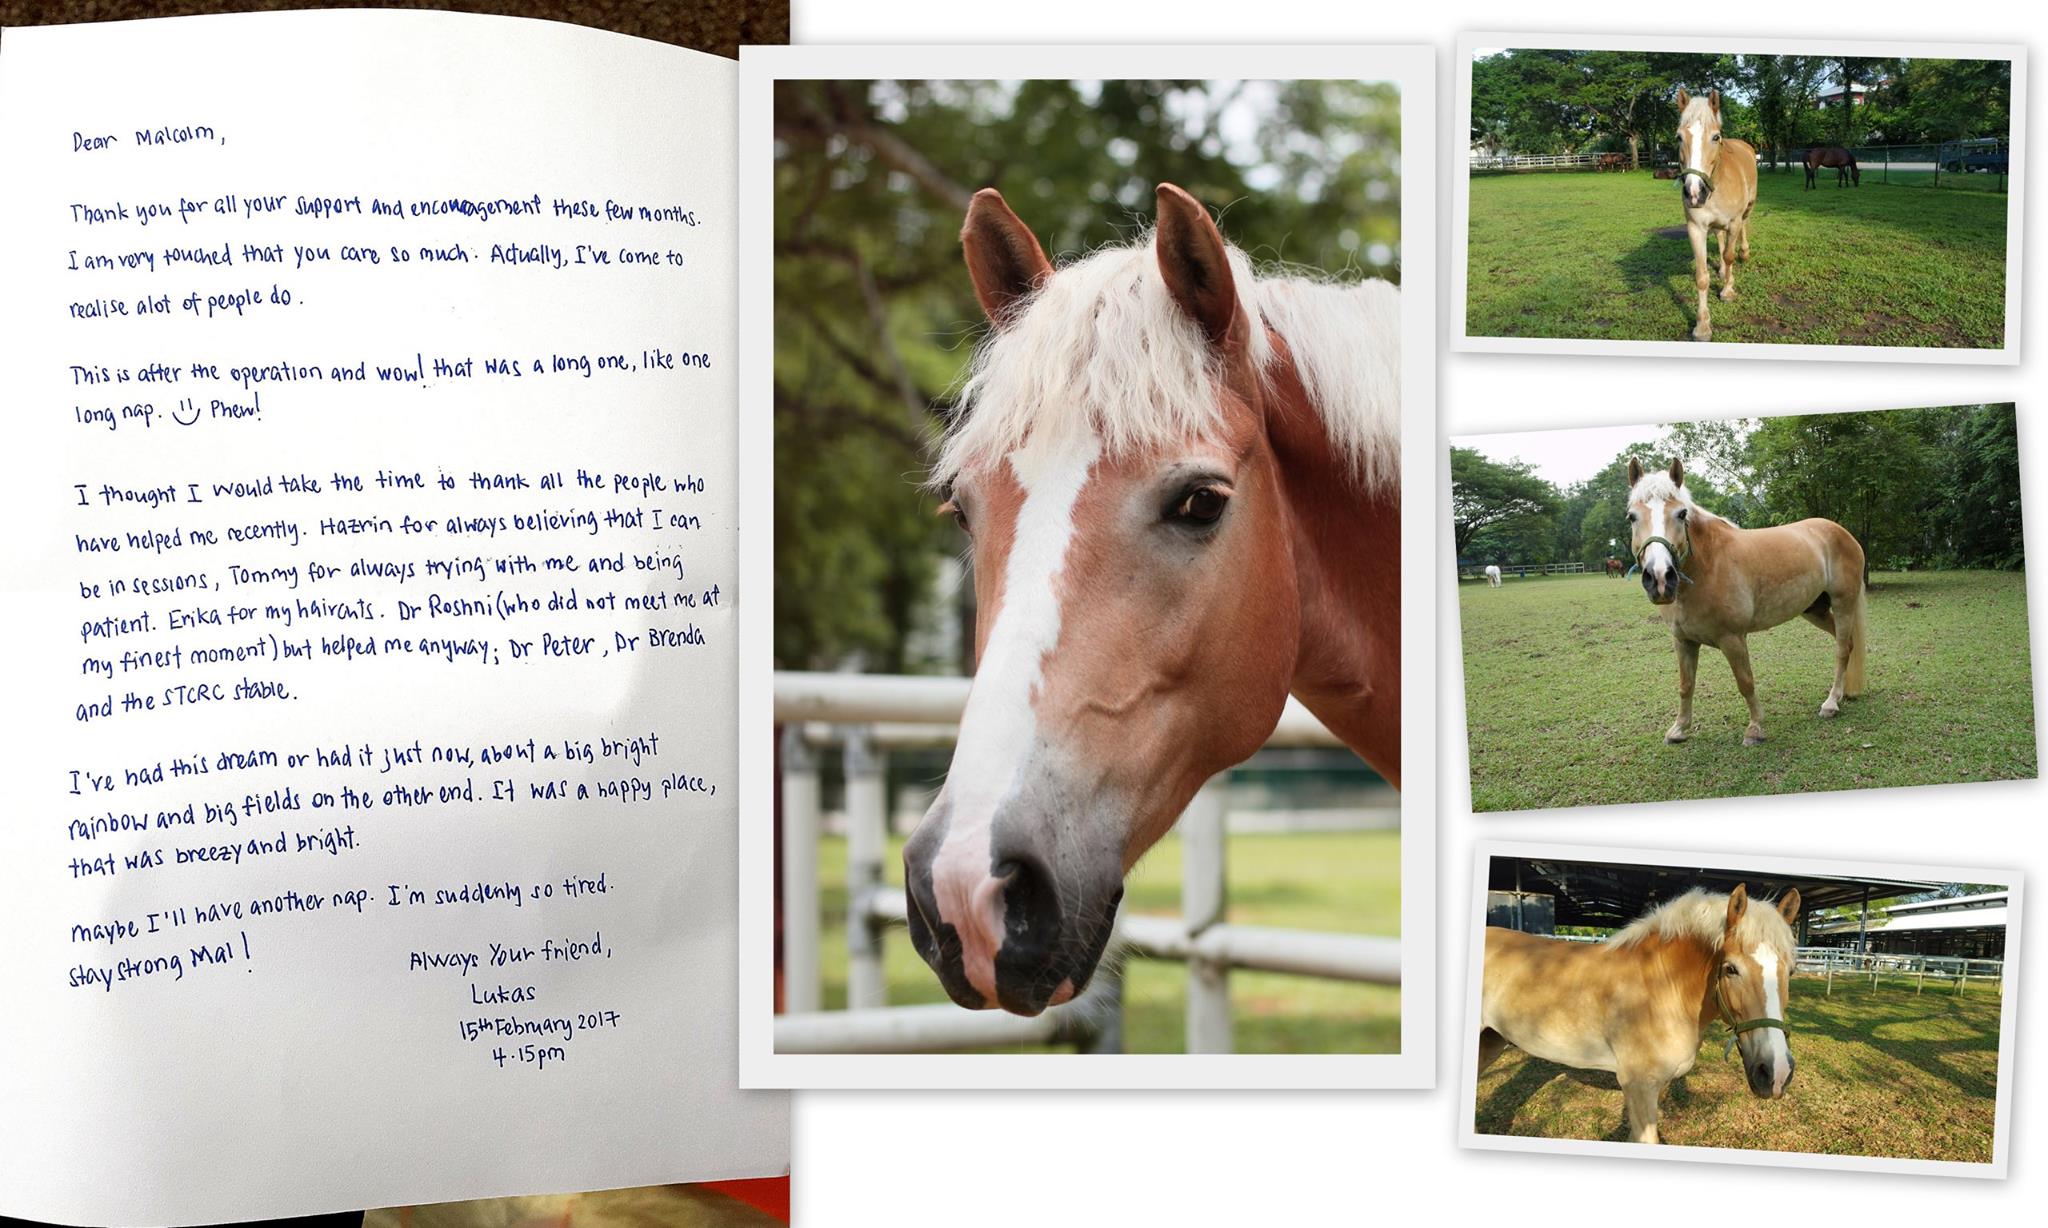 Dear Malcolm,
Thank you for all your support and encouragement these few months.
I am very touched that you care so much. Actually, I've come to
realise alot of people do.
This is after the operation and wow! that was a long one, like one
long nap. Phew!
I thought I would take the time to thank all the people who
have helped me recently. Hazrin for always believing that I can
be in sessions, Tommy for always trying with me and being
patient. Erika for my haircuts. Dr Roshni (who did not meet me at
my finest moment) but helped me anyway; Dr Peter, Dr Brenda
and the STCRC stable.
I've had this dream or had it just now, about a big bright
rainbow and big fields on the other end. It was a happy place,
that was breezy and bright.
maybe I'll have another nap. I'm suddenly so tired.
stay strong Mal!
Always Your friend,
Lukas
15th February 2017
4.15pm